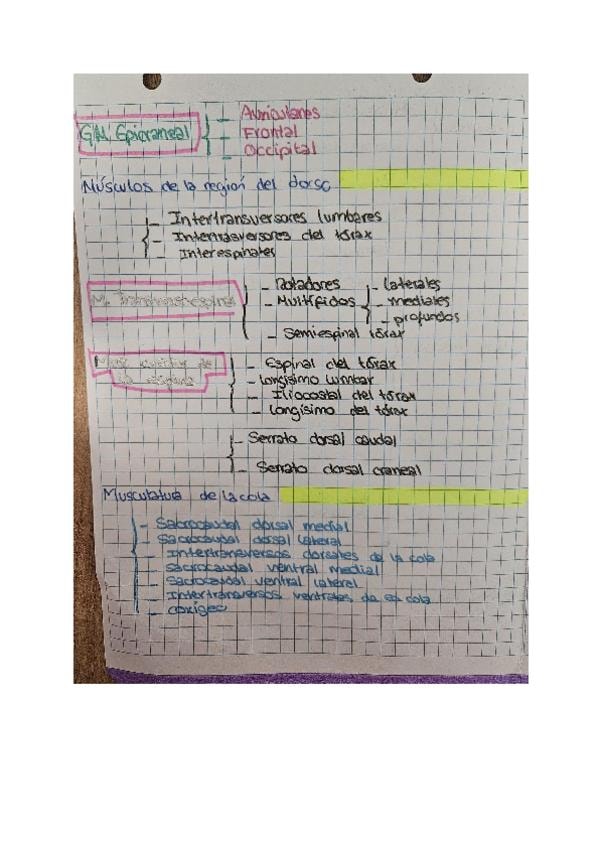 G.M. Epicraneal
- Auriculares
- Frontal
- Occipital
Músculos de la región del dorso
- Intertransversores lumbares
- Intertrasversores del tórax
- Interespinales
M. Transversoespinal
- Rotadores
- Multífidos
- laterales
- mediales
- profundos
- Semiespinal tórax
de
la espalda
- Espinal del tórax
- Longísimo lumbar
- Iliocostal del tórax
- Longísimo del tórax
- Serrato dorsal caudal
- Serrato dorsal craneal
Musculatura de la cola
- Sacrocaudal dorsal medial
- Sacrocaudal dorsal lateral
- Intertransversos dorsales de la cola
- Sacrocaudal ventral medial
- Sacrocaudal ventral lateral
- Intertransversos ventrales de la cola
- coxígeo